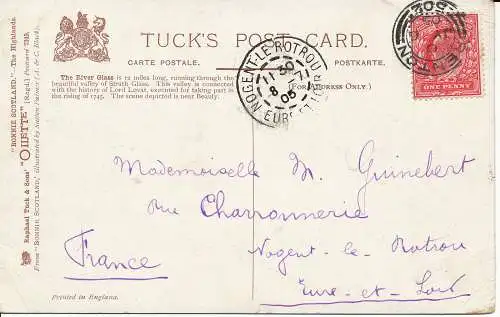 TUCK'S POST CARD.
CARTE POSTALE. POSTKARTE.
The River Glass is 12 miles long, running through the
beautiful valley of Strath Glass. This valley is connected
with the history of Lord Lovat, executed for taking part in
the rising of 1745. The scene depicted is near Beauly.
(FOR ADDRESS ONLY.)
NOGENT-LE-ROTROU
EURE-ET-LOIR
ONE PENNY
Mademoiselle M. Guinebert
Rue Charronnerie
Nogent-le-Rotrou
Eure-et-Loir
France
Printed in England.
Raphael Tuck & Sons' "OILETTE" (Regd.) Postcard 7349.
"BONNIE SCOTLAND."–The Highlands.
From "BONNIE SCOTLAND,"